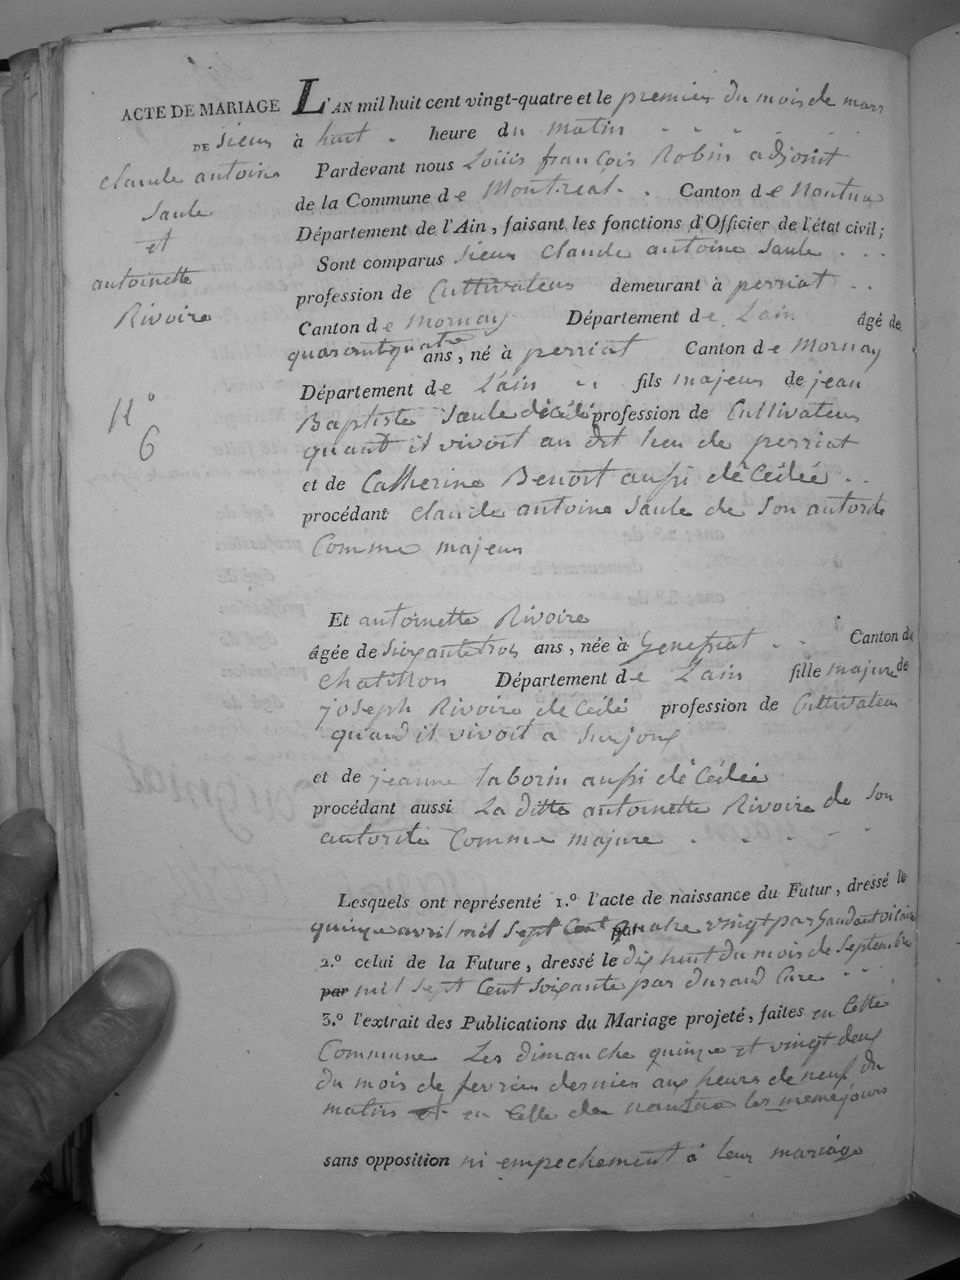 ACTE DE MARIAGE
DE Sieur
Claude antoine
Saule
et
antoinette
Rivoire
N°
6
L'AN mil huit cent vingt-quatre et le premier du mois de mars
à huit heure du matin
Pardevant nous Loüis françois Robin adjoint
de la Commune de Montreal. Canton de Nantua
Département de l'Ain, faisant les fonctions d'Officier de l'état civil;
Sont comparus Sieur Claude antoine Saule
profession de Cultivateur demeurant à perriat
Canton de Mornay Département de L'ain âgé de
quarantquatre ans, né à perriat Canton de Mornay
Département de L'ain fils majeur de jean
Baptiste Saule décédé profession de Cultivateur
quant il vivoit au dit lieu de perriat
et de Catherine Benoit aussi décédée
procédant Claude antoine Saule de Son autorité
Comme majeur
Et antoinette Rivoire
âgée de Soixantetrois ans, née à Genissiat Canton de
Chatillon Département de L'ain fille majure de
joseph Rivoire décédé profession de Cultivateur
quand il vivoit a Surjoux
et de jeanne taborin aussi décédée
procédant aussi La ditte antoinette Rivoire de Son
autorité Comme majure
Lesquels ont représenté 1.° l'acte de naissance du Futur, dressé le
quinze avril mil Sept Cent quatre vingt par Gaudant vicaire
2.° celui de la Future, dressé le dix huit du mois de Septembre
par mil Sept Cent Soixante par durand Cure
3.° l'extrait des Publications du Mariage projeté, faites en Cette
Commune Les dimanche quinze et vingt deux
du mois de fevrier dernier aux heure de neuf du
matin et en Celle de nantua les meme jours
sans opposition ni empechement a leur mariage